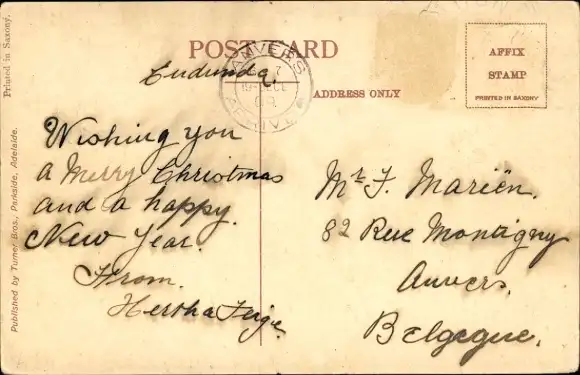 POST CARD
Eudunda.
ANVERS
ADDRESS ONLY
AFFIX
STAMP
PRINTED IN SAXONY
Printed in Saxony.
Published by Turner Bros., Parkside, Adelaide.
Wishing you
a Merry Christmas
and a happy.
New Year.
From.
Hertha Feige.
Mr F. Mariën.
82 Rue Montigny
Anvers.
Belgeque.